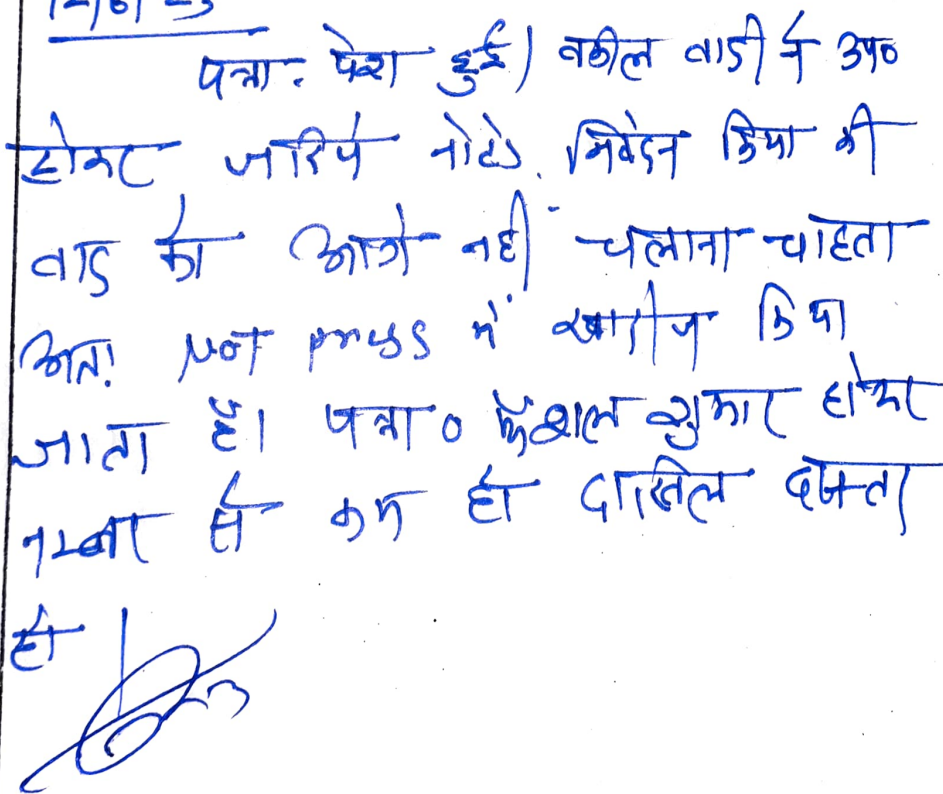 पत्रा. पेश हुई। वकील वादी ने उप०
होकर जरिये नोटे. निवेदन किया की
वाद को आगे नहीं चलाना चाहता
अतः Not press में खारीज किया
जाता है। पत्रा० फैशल शुमार होकर
नम्बर से कम हो दाखिल दफ्तर
हो